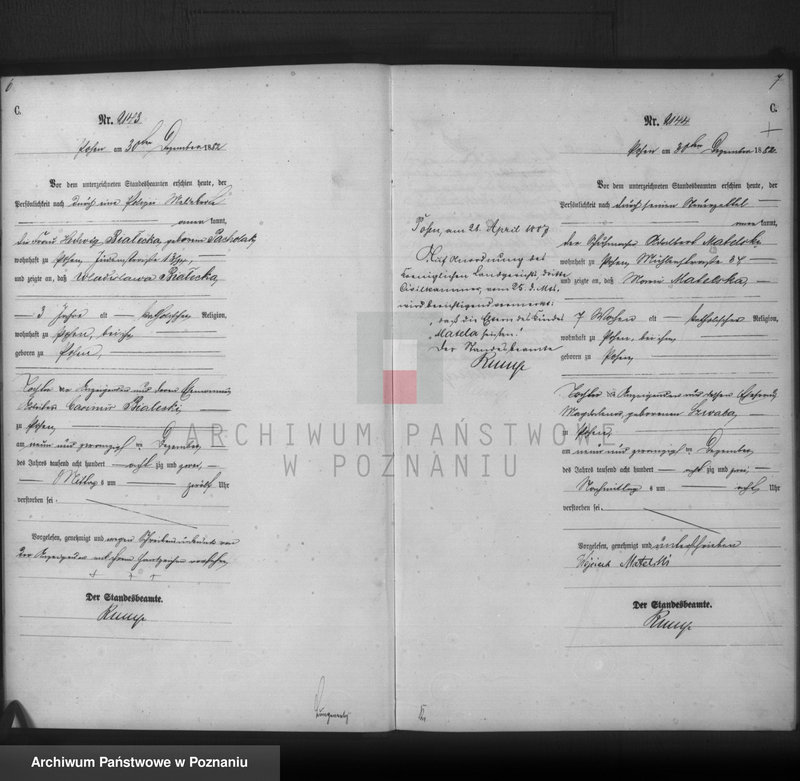 6
C.
Nr. 2143
Posen am 30ten Dezember 1882
Vor dem unterzeichneten Standesbeamten erschien heute, der
Persönlichkeit nach durch eine
kannt,
die Frau Hedwig Białecka geborene
wohnhaft zu Posen,
und zeigte an, daß Wladislawa Białecka,
3 Jahre alt katholischer Religion,
wohnhaft zu Posen, bei ihr
geboren zu Posen,
Tochter der Anzeigenden und deren Ehemannes
Casimir Białecki,
zu Posen,
am neun und zwanzigsten Dezember
des Jahres tausend acht hundert acht zig und zwei
Mittags um zwölf Uhr
verstorben sei.
Vorgelesen, genehmigt und wegen Schreibensunkunde von
der Anzeigenden mit ihrem Handzeichen versehen.
+ + +
Der Standesbeamte.
Rump
Posen, am 21. April
Auf Anordnung des
Koeniglichen Landgerichts, dritte
Civilkammer, vom 25. d. Mts.
wird berichtigend vermerkt:
"daß die Eltern des Kindes
"Matela heißen."
Der Standesbeamte
Rump
7
C.
+
Nr. 2144
Posen am 30ten Dezember 1882
Vor dem unterzeichneten Standesbeamten erschien heute, der
Persönlichkeit nach durch seinen Steuerzettel
kannt,
der Schuhmacher Adalbert Matelski
wohnhaft zu Posen, Mühlenstraße 37
und zeigte an, daß Maria Matelska,
7 Wochen alt katholischer Religion,
wohnhaft zu Posen, bei ihm
geboren zu Posen,
Tochter des Anzeigenden und dessen Ehefrau
Magdalena, geborenen Szwala,
zu Posen,
am neun und zwanzigsten Dezember
des Jahres tausend acht hundert acht zig und zwei
Nachmittags um acht Uhr
verstorben sei.
Vorgelesen, genehmigt und unterschrieben
Wojciech Matelski
Der Standesbeamte.
Rump
ARCHIWUM PAŃSTWOWE
W POZNANIU
Archiwum Państwowe w Poznaniu